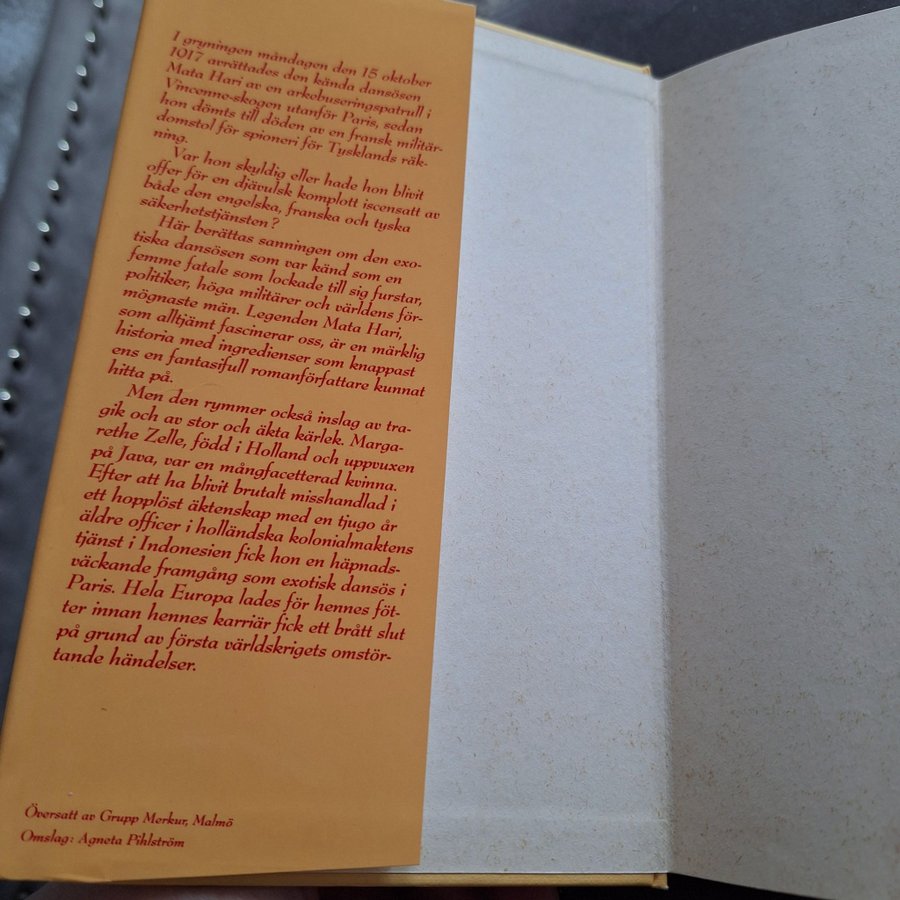 I gryningen måndagen den 15 oktober
1017 avrättades den kända dansösen
Mata Hari av en arkebuseringspatrull i
Vincenne-skogen utanför Paris, sedan
hon dömts till döden av en fransk militär-
domstol för spioneri för Tysklands räk-
ning.
Var hon skyldig eller hade hon blivit
offer för en djävulsk komplott iscensatt av
både den engelska, franska och tyska
säkerhetstjänsten?
Här berättas sanningen om den exo-
tiska dansösen som var känd som en
femme fatale som lockade till sig furstar,
politiker, höga militärer och världens för-
mögnaste män. Legenden Mata Hari,
som alltjämt fascinerar oss, är en märklig
historia med ingredienser som knappast
ens en fantasifull romanförfattare kunnat
hitta på.
Men den rymmer också inslag av tra-
gik och av stor och äkta kärlek. Marga-
rethe Zelle, född i Holland och uppvuxen
på Java, var en mångfacetterad kvinna.
Efter att ha blivit brutalt misshandlad i
ett hopplöst äktenskap med en tjugo år
äldre officer i holländska kolonialmaktens
tjänst i Indonesien fick hon en häpnads-
väckande framgång som exotisk dansös i
Paris. Hela Europa lades för hennes föt-
ter innan hennes karriär fick ett brått slut
på grund av första världskrigets omstör-
tande händelser.
Översatt av Grupp Merkur, Malmö
Omslag: Agneta Pihlström